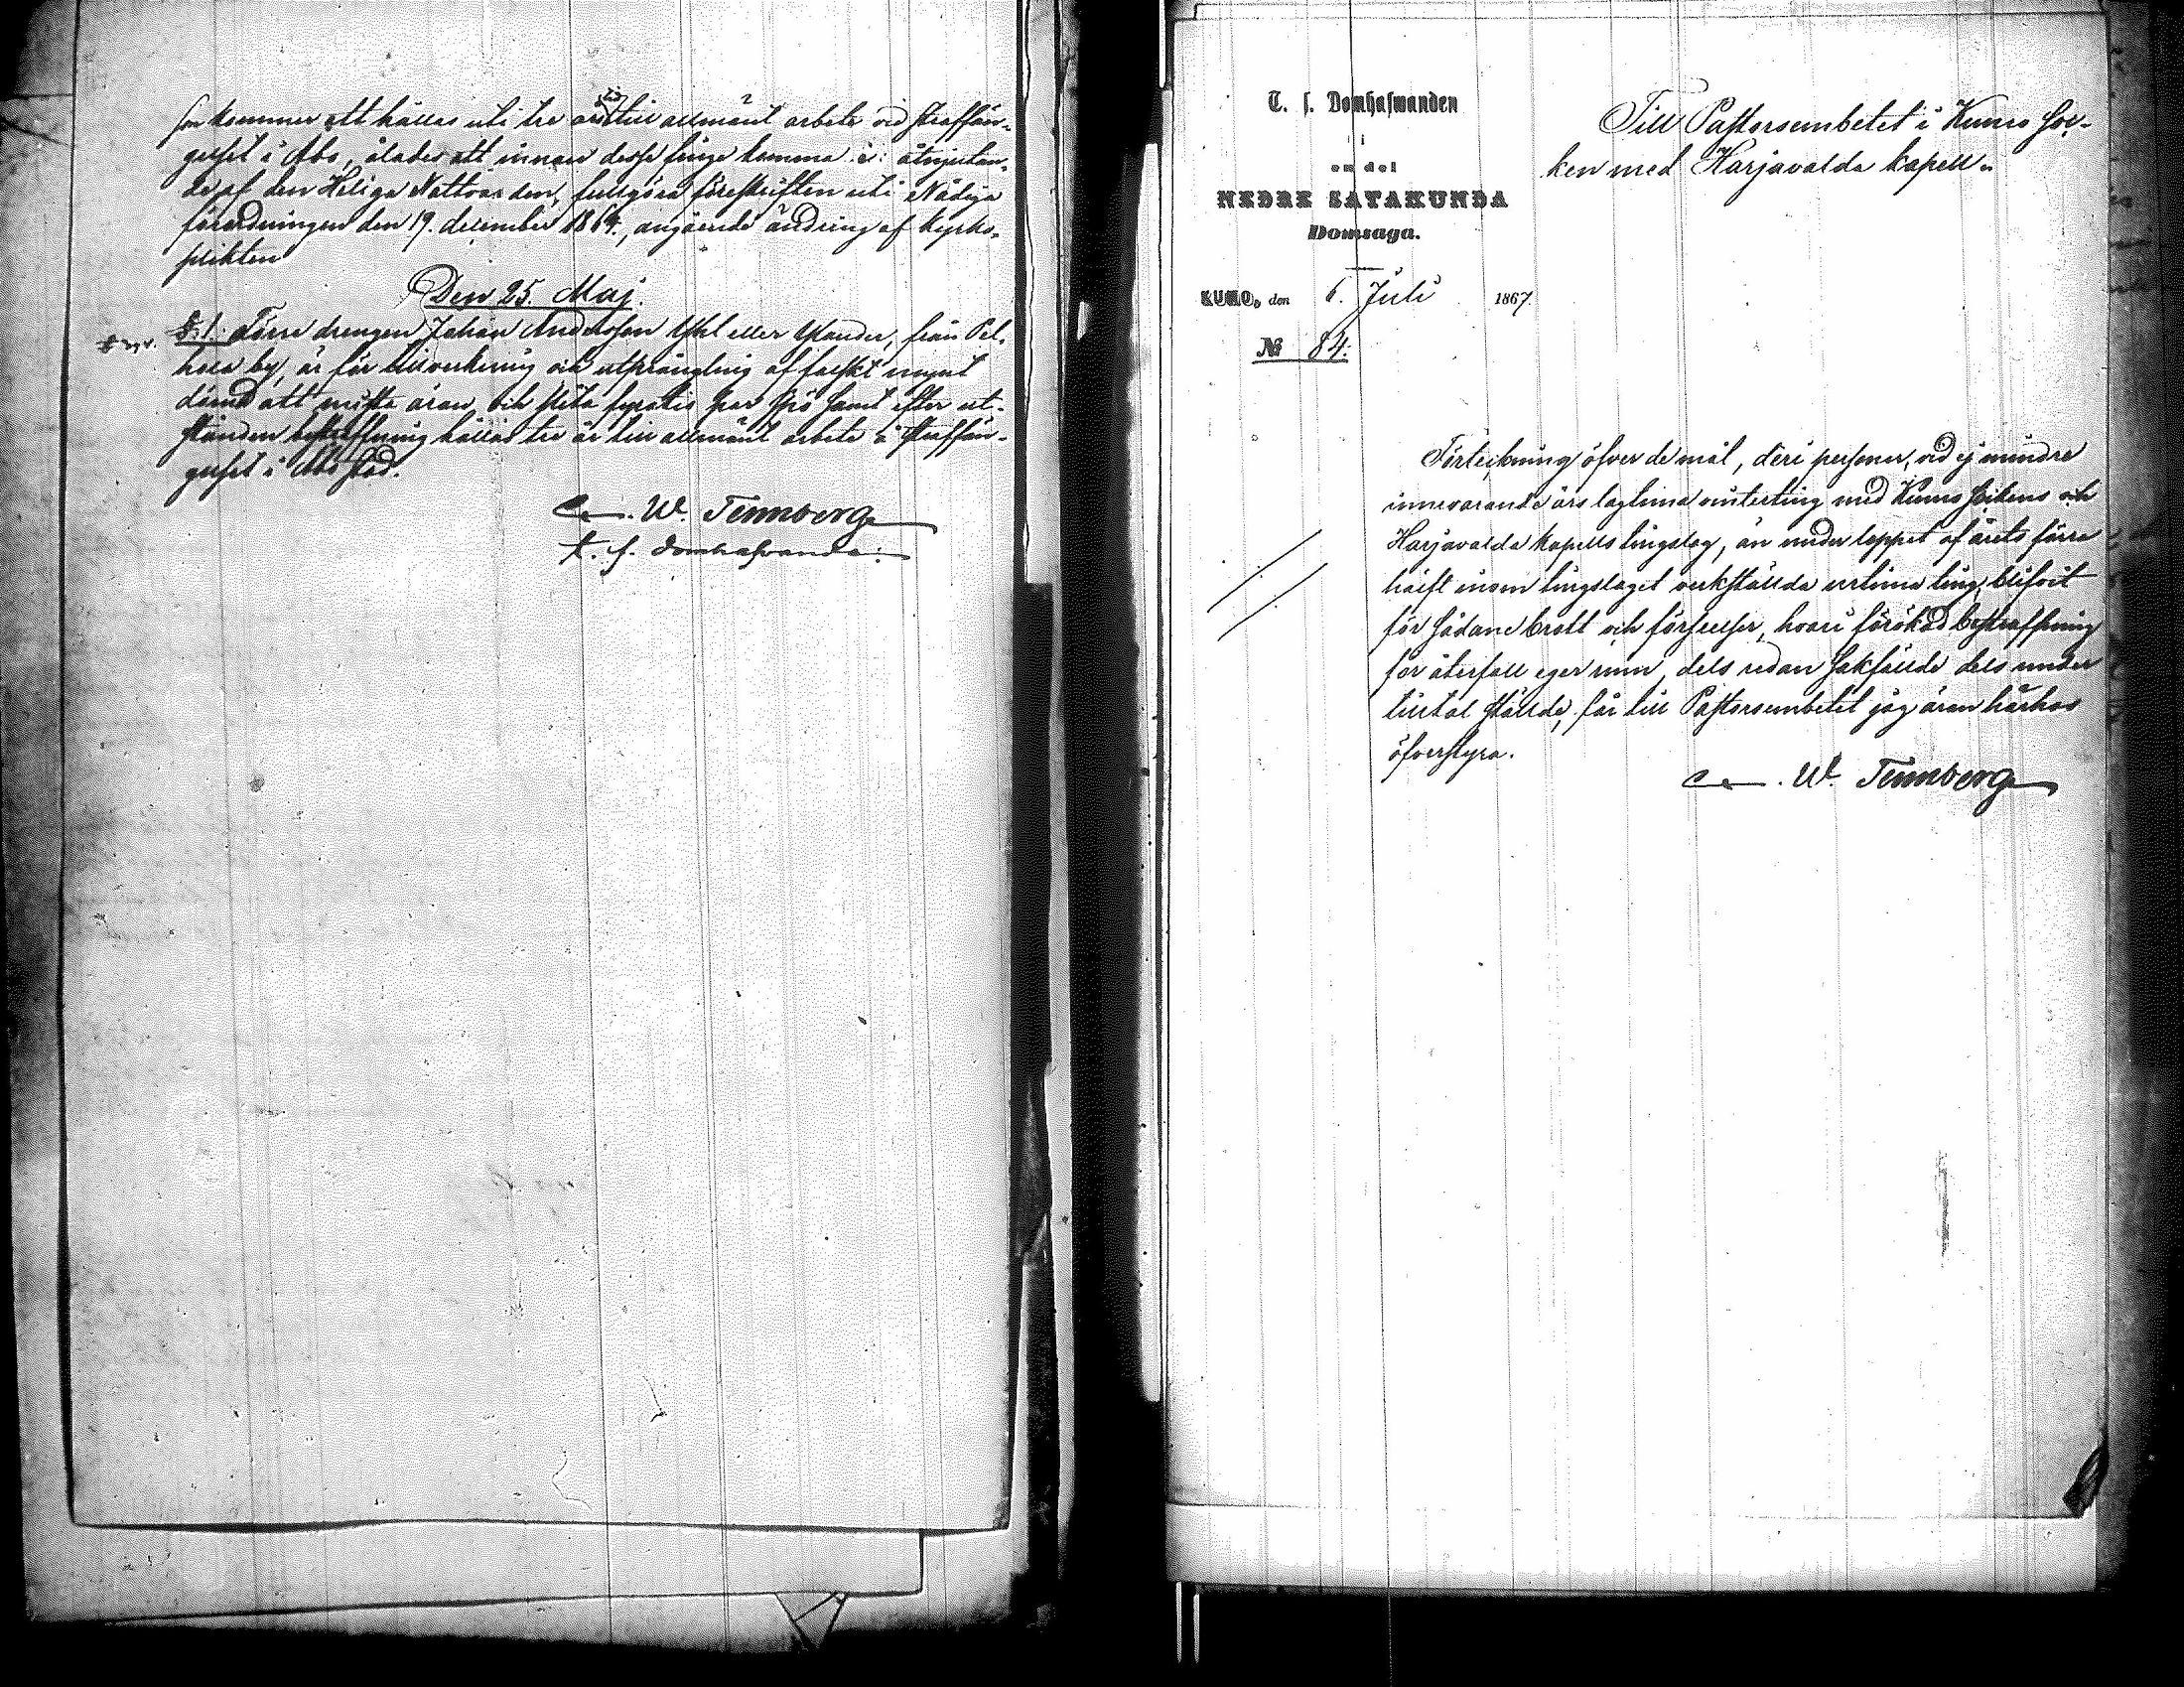 som kommer att hållas uti tre års tid till allmänt arbete vid straffän-
gelset i Åbo, ålades att innan desse finge komma i åtnjutan-
de af den Heliga Nattvarden, fullgöra föreskriften uti Nådiga
förordningen den 19. december 1864, angående ändring af kyrko-
plikten
Den 25. Maj.
§.1. Förre drengen Johan Andersson Yhl eller Ylander, från Pel-
hola by, är för tillverkning och utprångling af falskt mynt
dömd att mista äran och slita fyratio par spö samt efter ut-
stånden bestraffning hållas tre år till allmänt arbete å straffän-
gelset i Åbo stad.
W. Tennberg
t. f. domhafvande:
T. f. Domhafwanden
i
en del
NEDRE SATAKUNDA
Domsaga.
KUMO, den 6. Juli 1867.
No 84.
Till Pastorsembetet i Kumo soc-
ken med Harjavalda kapell
Förteckning öfver de mål, deri personer, vid ej mindre
innevarande års lagtima vinterting med Kumo sockens och
Harjavalda kapells tingslag, än under loppet af årets förra
hälft inom tingslaget verkställda urtima ting, blifvit
för sådane brott och förseelser, hvari förökad bestraffning
för återfall eger rum, dels redan sakfällde dels under
tilltal ställde, får till Pastorsembetet jag äran härhos
öfverstyra.
W. Tennberg